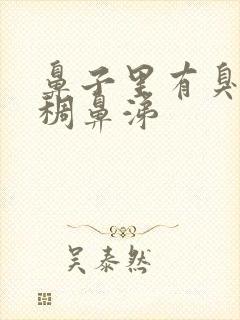 鼻子里有臭
稠鼻涕
吴泰然